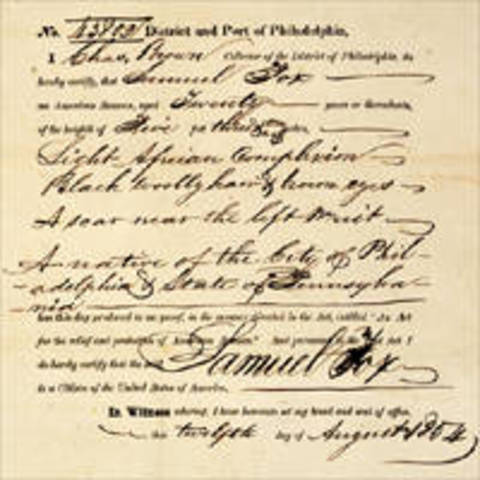 No. District and Port of Philadelphia,
I Chas. Brown Collector of the District of Philadelphia, do
hereby certify, that Samuel Fox
an American Seaman, aged Twenty years or thereabouts,
of the height of Five feet three inches,
Light African Complexion
Black woolly hair & brown eyes
A scar near the left wrist
A native of the City of Phil-
adelphia & State of Pennsylva-
nia
has this day produced to me proof, in the manner directed in the Act, entitled "An Act
for the relief and protection of American Seamen." And pursuant to the said Act I
do hereby certify that the said Samuel Fox
is a Citizen of the United States of America.
In Witness whereof, I have hereunto set my hand and seal of office,
this twelfth day of August 1854